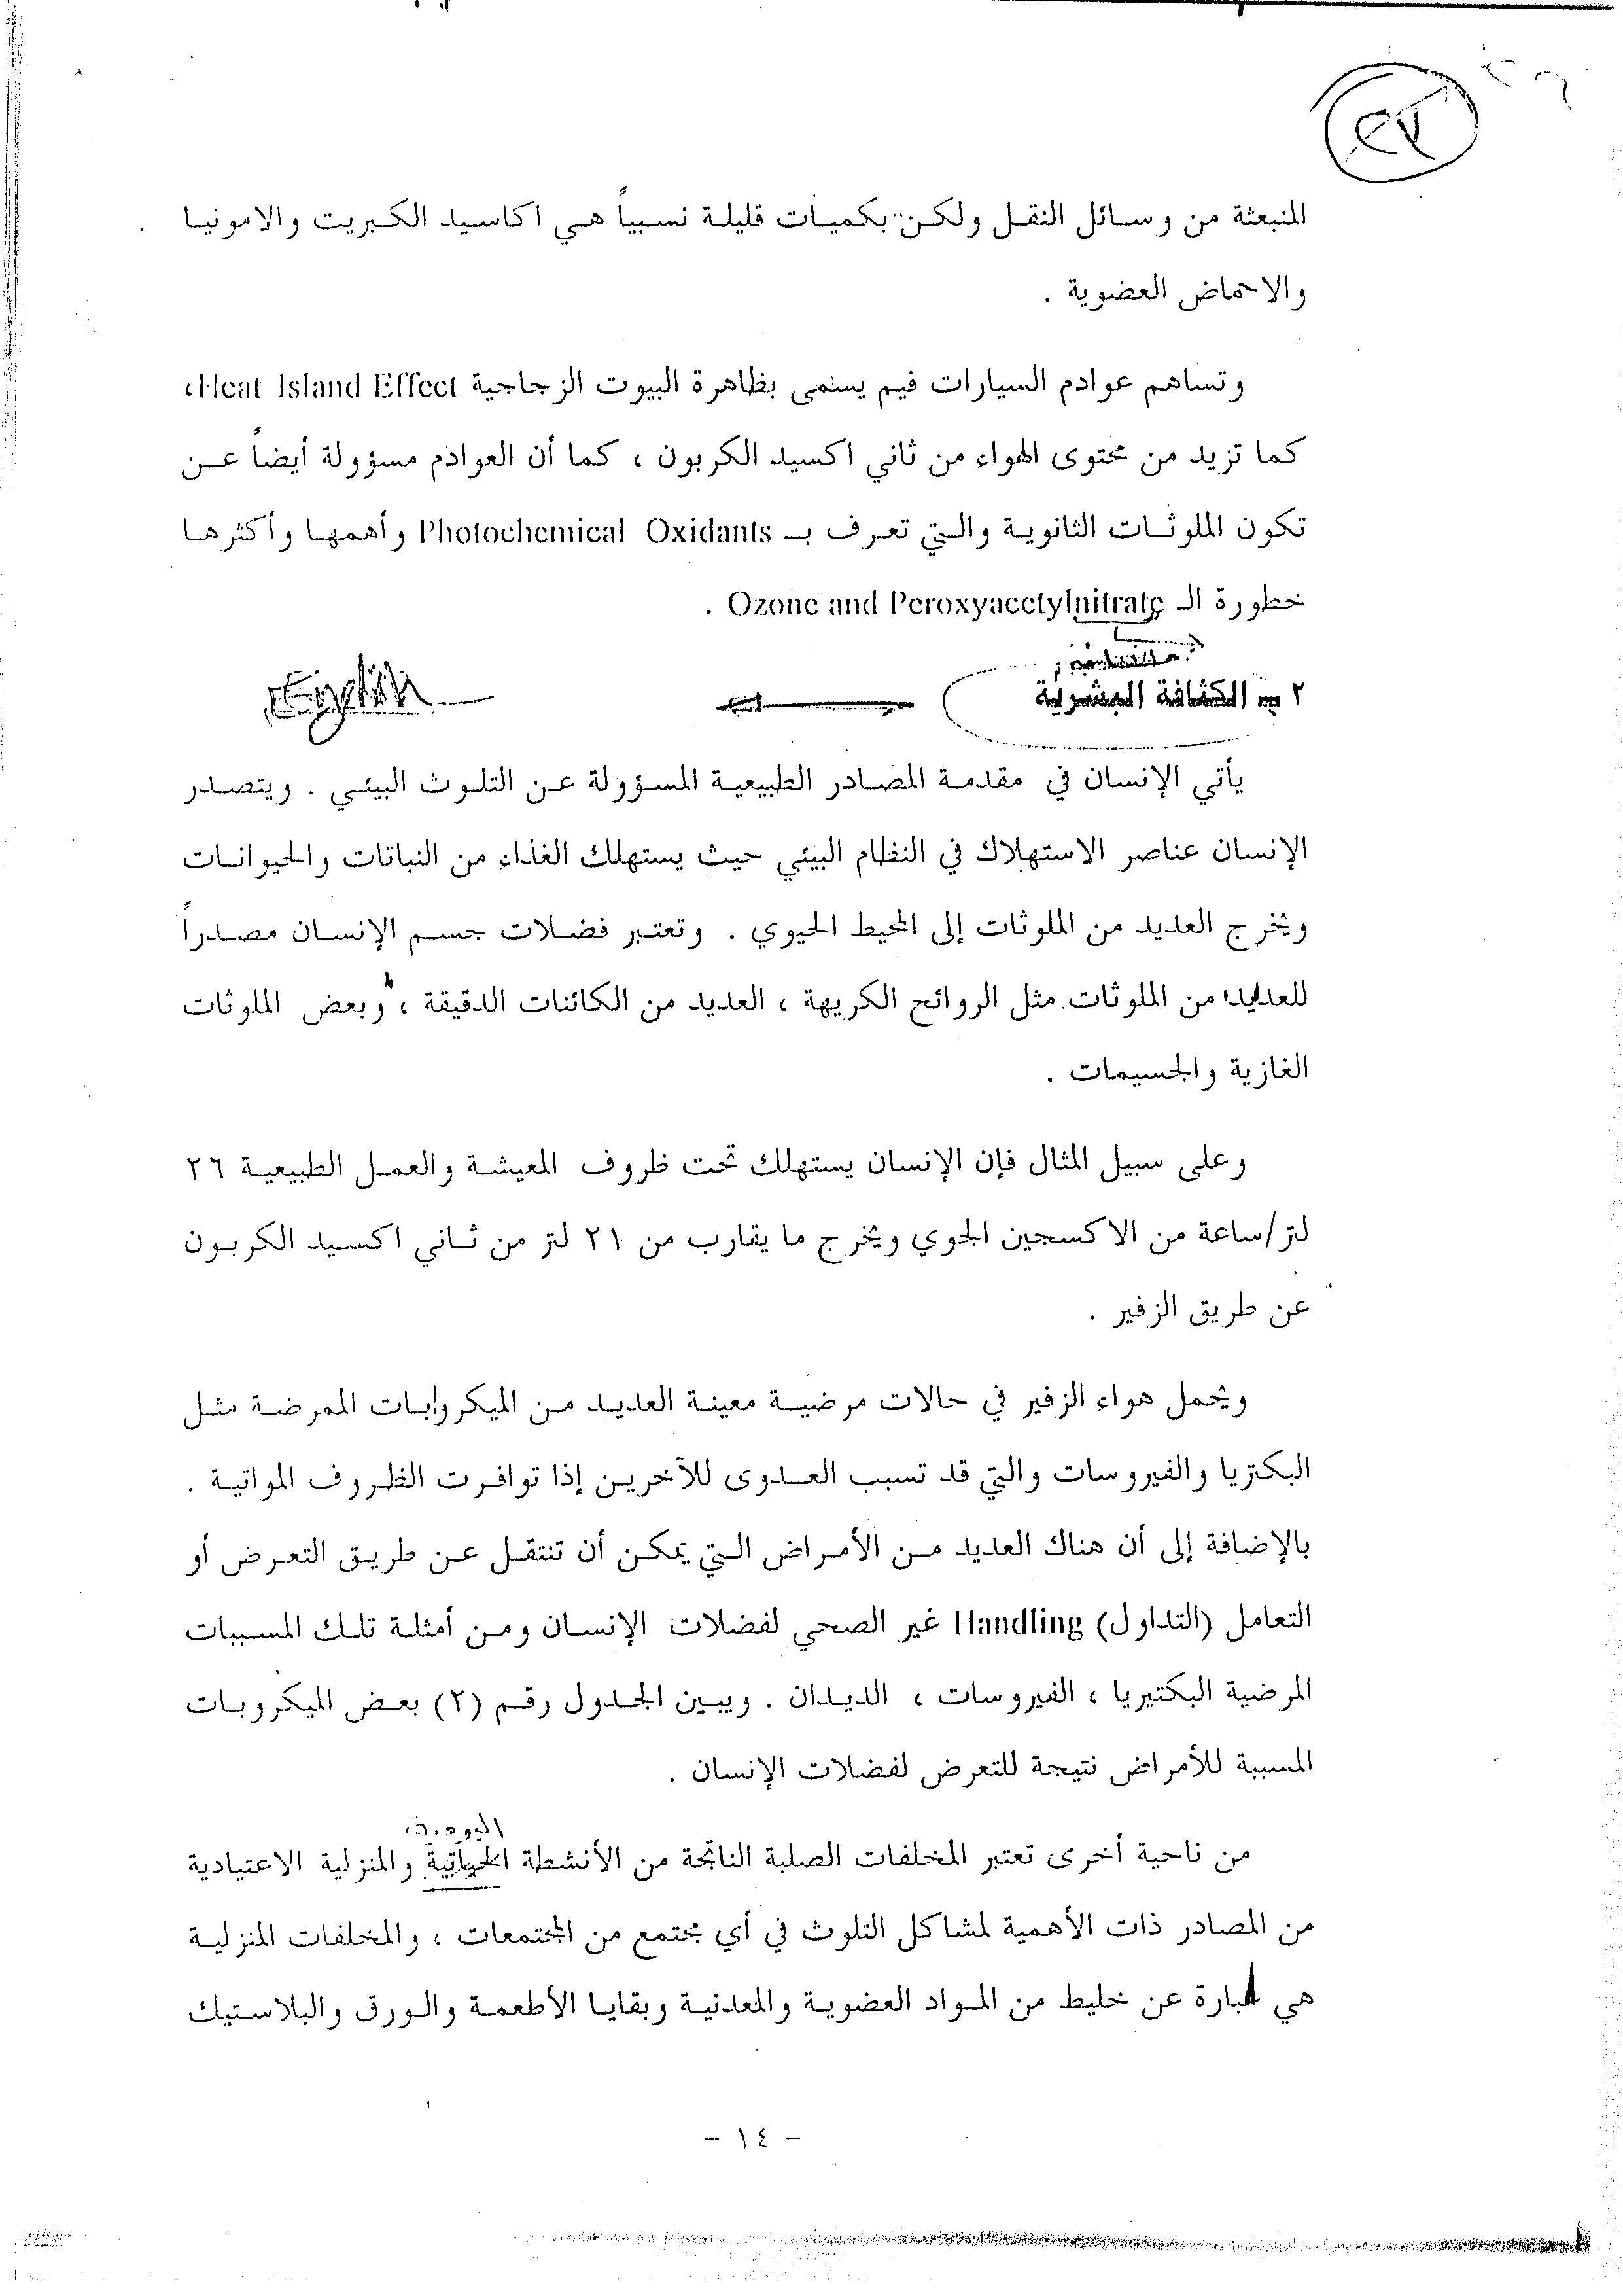 المنبعثة من وسائل النقل ولكن بكميات قليلة نسبياً هي اكاسيد الكبريت والامونيا
والاحماض العضوية .
وتساهم عوادم السيارات فيم يسمى بظاهرة البيوت الزجاجية Heat Island Effect،
كما تزيد من محتوى الهواء من ثاني اكسيد الكربون ، كما أن العوادم مسؤولة أيضاً عن
تكون الملوثات الثانوية والتي تعرف بـ Photochemical Oxidants وأهمها وأكثرها
خطورة الـ Ozone and Peroxyacetylnitrate .
٢ - الكثافة البشرية
English
يأتي الإنسان في مقدمة المصادر الطبيعية المسؤولة عن التلوث البيئي . ويتصدر
الإنسان عناصر الاستهلاك في النظام البيئي حيث يستهلك الغذاء من النباتات والحيوانات
ويخرج العديد من الملوثات إلى المحيط الحيوي . وتعتبر فضلات جسم الإنسان مصدراً
للعديد من الملوثات مثل الروائح الكريهة ، العديد من الكائنات الدقيقة ، وبعض الملوثات
الغازية والجسيمات .
وعلى سبيل المثال فإن الإنسان يستهلك تحت ظروف المعيشة والعمل الطبيعية ٢٦
لتر/ساعة من الاكسجين الجوي ويخرج ما يقارب من ٢١ لتر من ثاني اكسيد الكربون
عن طريق الزفير .
ويحمل هواء الزفير في حالات مرضية معينة العديد من الميكروبات الممرضة مثل
البكتريا والفيروسات والتي قد تسبب العدوى للآخرين إذا توافرت الظروف المواتية .
بالإضافة إلى أن هناك العديد من الأمراض التي يمكن أن تنتقل عن طريق التعرض أو
التعامل (التداول) Handling غير الصحي لفضلات الإنسان ومن أمثلة تلك المسببات
المرضية البكتيريا ، الفيروسات ، الديدان . ويبين الجدول رقم (٢) بعض الميكروبات
المسببة للأمراض نتيجة للتعرض لفضلات الإنسان .
اليومية
من ناحية أخرى تعتبر المخلفات الصلبة الناتجة من الأنشطة الحياتية والمنزلية الاعتيادية
من المصادر ذات الأهمية لمشاكل التلوث في أي مجتمع من المجتمعات ، والمخلفات المنزلية
هي عبارة عن خليط من المواد العضوية والمعدنية وبقايا الأطعمة والورق والبلاستيك
- ١٤ -